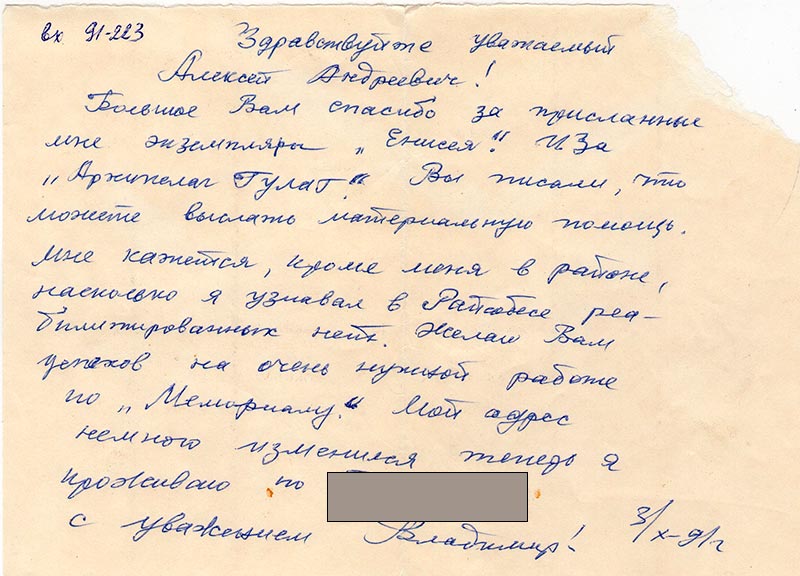 вх 91-223
Здравствуйте уважаемый
Алексей Андреевич!
Большое Вам спасибо за присланные
мне экземпляры „Енисея“. И За
„Архипелаг Гулаг“. Вы писали, что
можете выслать материальную помощь.
Мне кажется, кроме меня в районе,
насколько я узнавал в Райсобесе реа-
билитированных нет. Желаю Вам
успехов на очень нужной работе
по „Мемориалу“. Мой адрес
немного изменился теперь я
проживаю по
с уважением Владимир!
3/х-91г